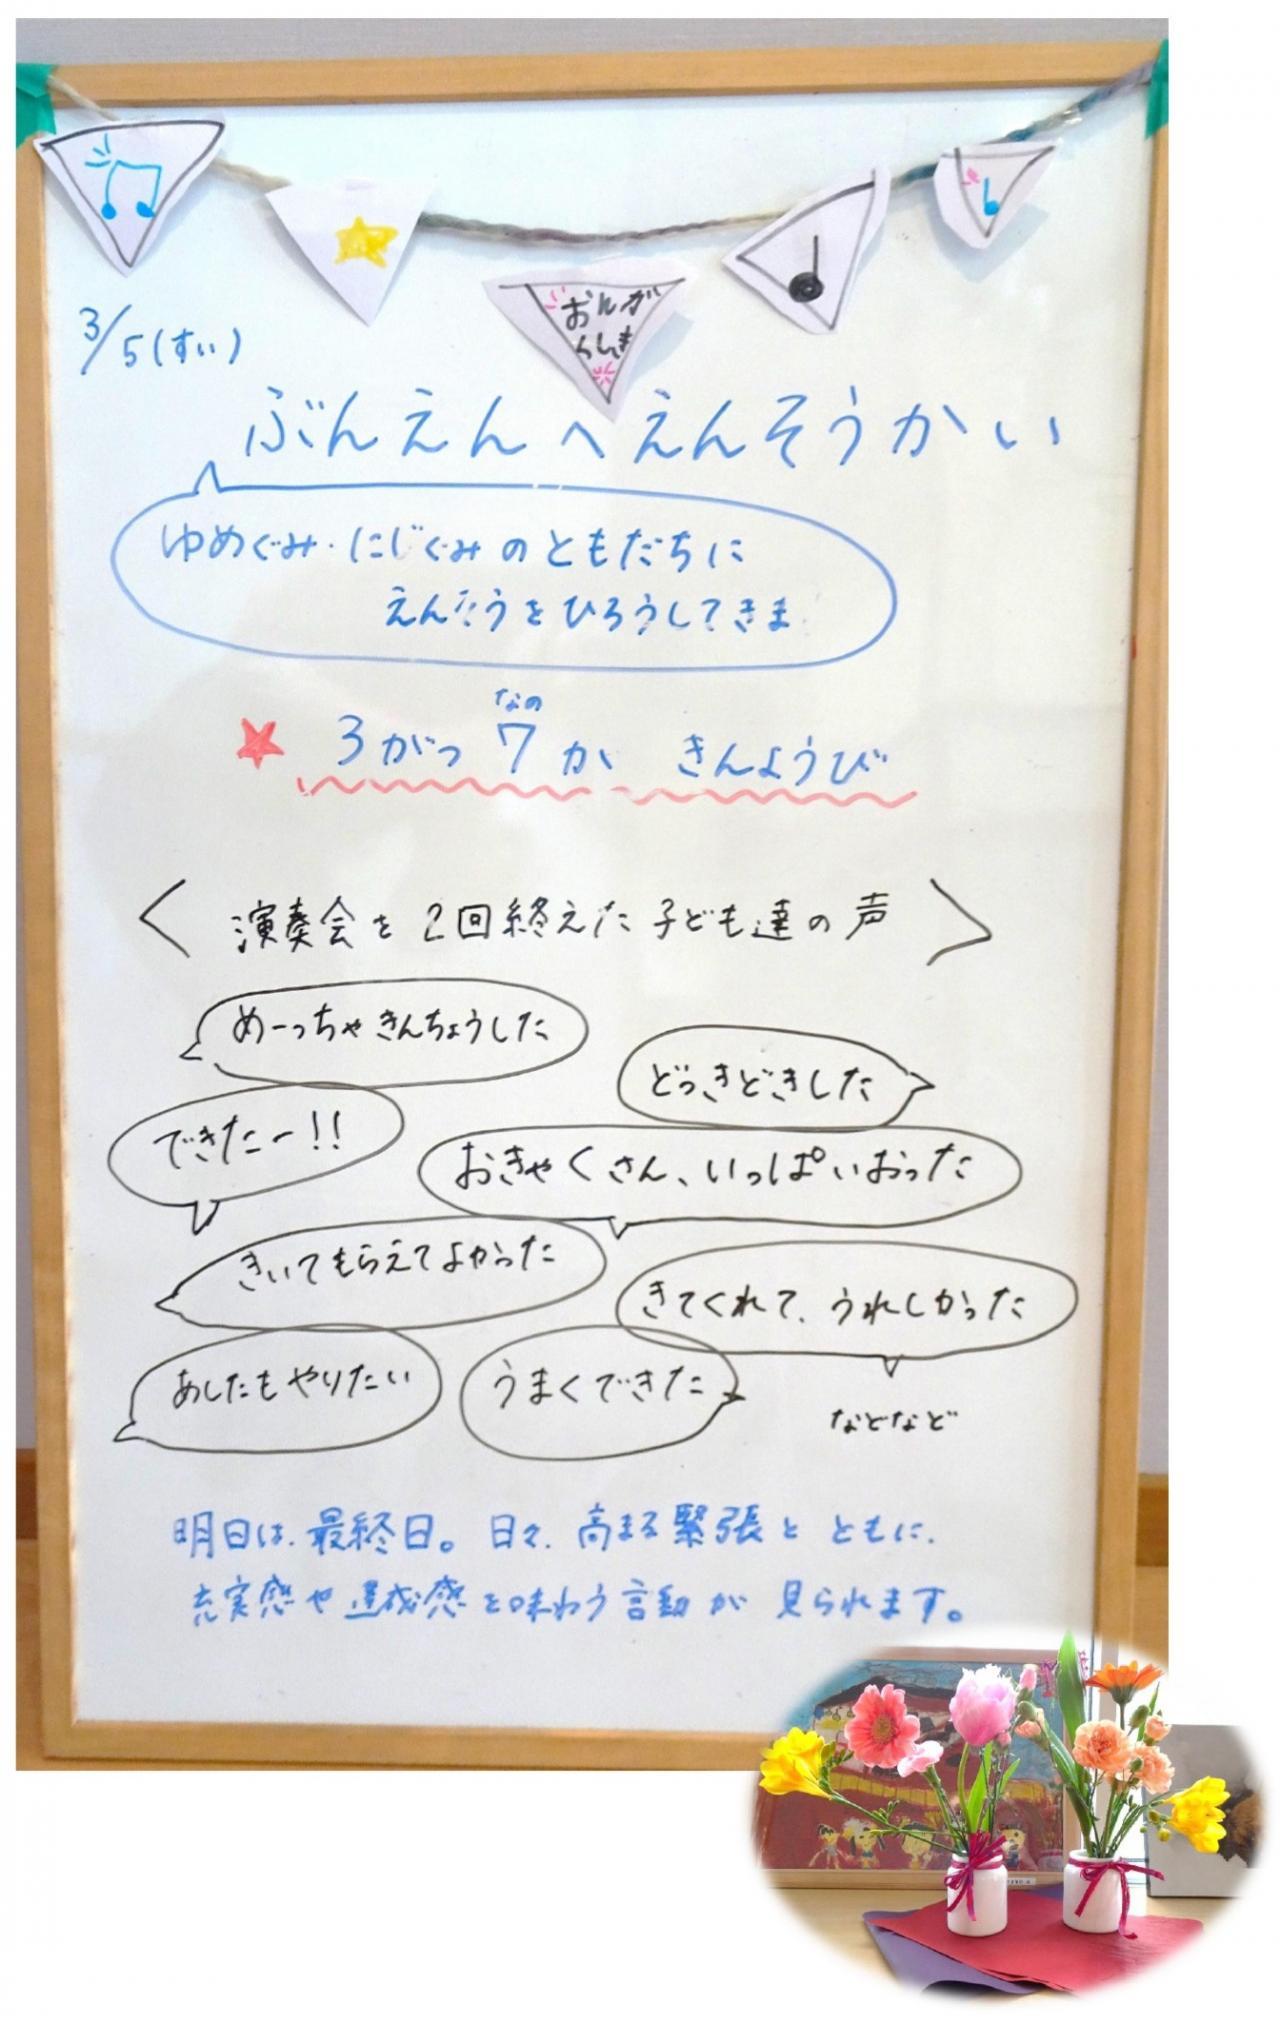 おんが
くしつ
3/5(すい)
ぶんえんへえんそうかい
ゆめぐみ・にじぐみのともだちに
えんそうをひろうしてきま
なの
★ 3がつ7か きんようび
〈演奏会を2回終えた子ども達の声〉
めーっちゃきんちょうした
どっきどきした
できたー!!
おきゃくさん、いっぱいおった
きいてもらえてよかった
きてくれて、うれしかった
あしたもやりたい
うまくできた
などなど
明日は、最終日。日々、高まる緊張とともに、
充実感や達成感を味わう言動が見られます。